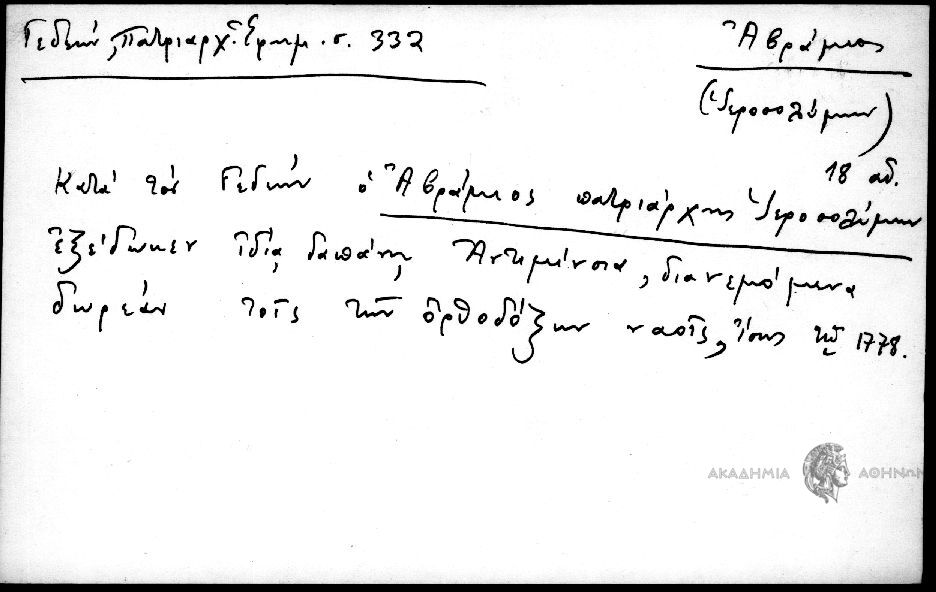 Γεδεών, Πατριαρχ. Ἐφημ. σ. 332
Ἀβράμιος
(Ἱεροσολύμων)
18 αἰ.
Κατά τόν Γεδεών ὁ Ἀβράμιος πατριάρχης Ἱεροσολύμων
ἐξέδωκεν ἰδίᾳ δαπάνῃ Ἀντιμήνσια, διανεμόμενα
δωρεάν τοῖς τῶν ὀρθοδόξων ναοῖς, ἔτους 1778.
ΑΚΑΔΗΜΙΑ ΑΘΗΝΩΝ